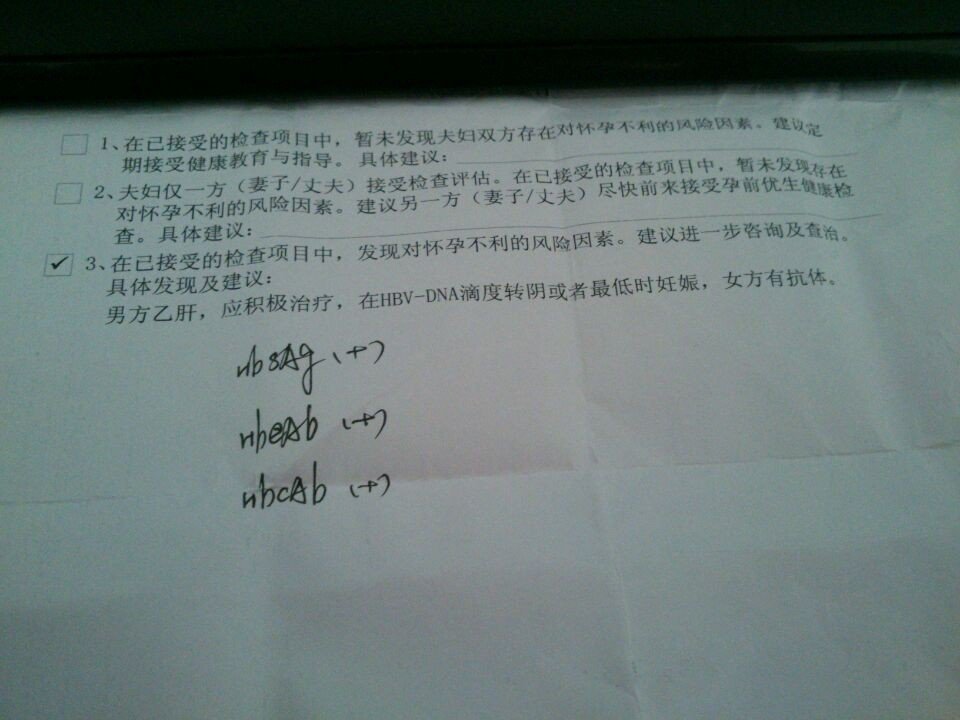 1、在已接受的检查项目中，暂未发现夫妇双方存在对怀孕不利的风险因素。建议定
期接受健康教育与指导。具体建议：
2、夫妇仅一方（妻子/丈夫）接受检查评估。在已接受的检查项目中，暂未发现存在
对怀孕不利的风险因素。建议另一方（妻子/丈夫）尽快前来接受孕前优生健康检
查。具体建议：
✓ 3、在已接受的检查项目中，发现对怀孕不利的风险因素。建议进一步咨询及查治。
具体发现及建议：
男方乙肝，应积极治疗，在HBV-DNA滴度转阴或者最低时妊娠，女方有抗体。
HbsAg (+)
HbeAb (+)
HbcAb (+)